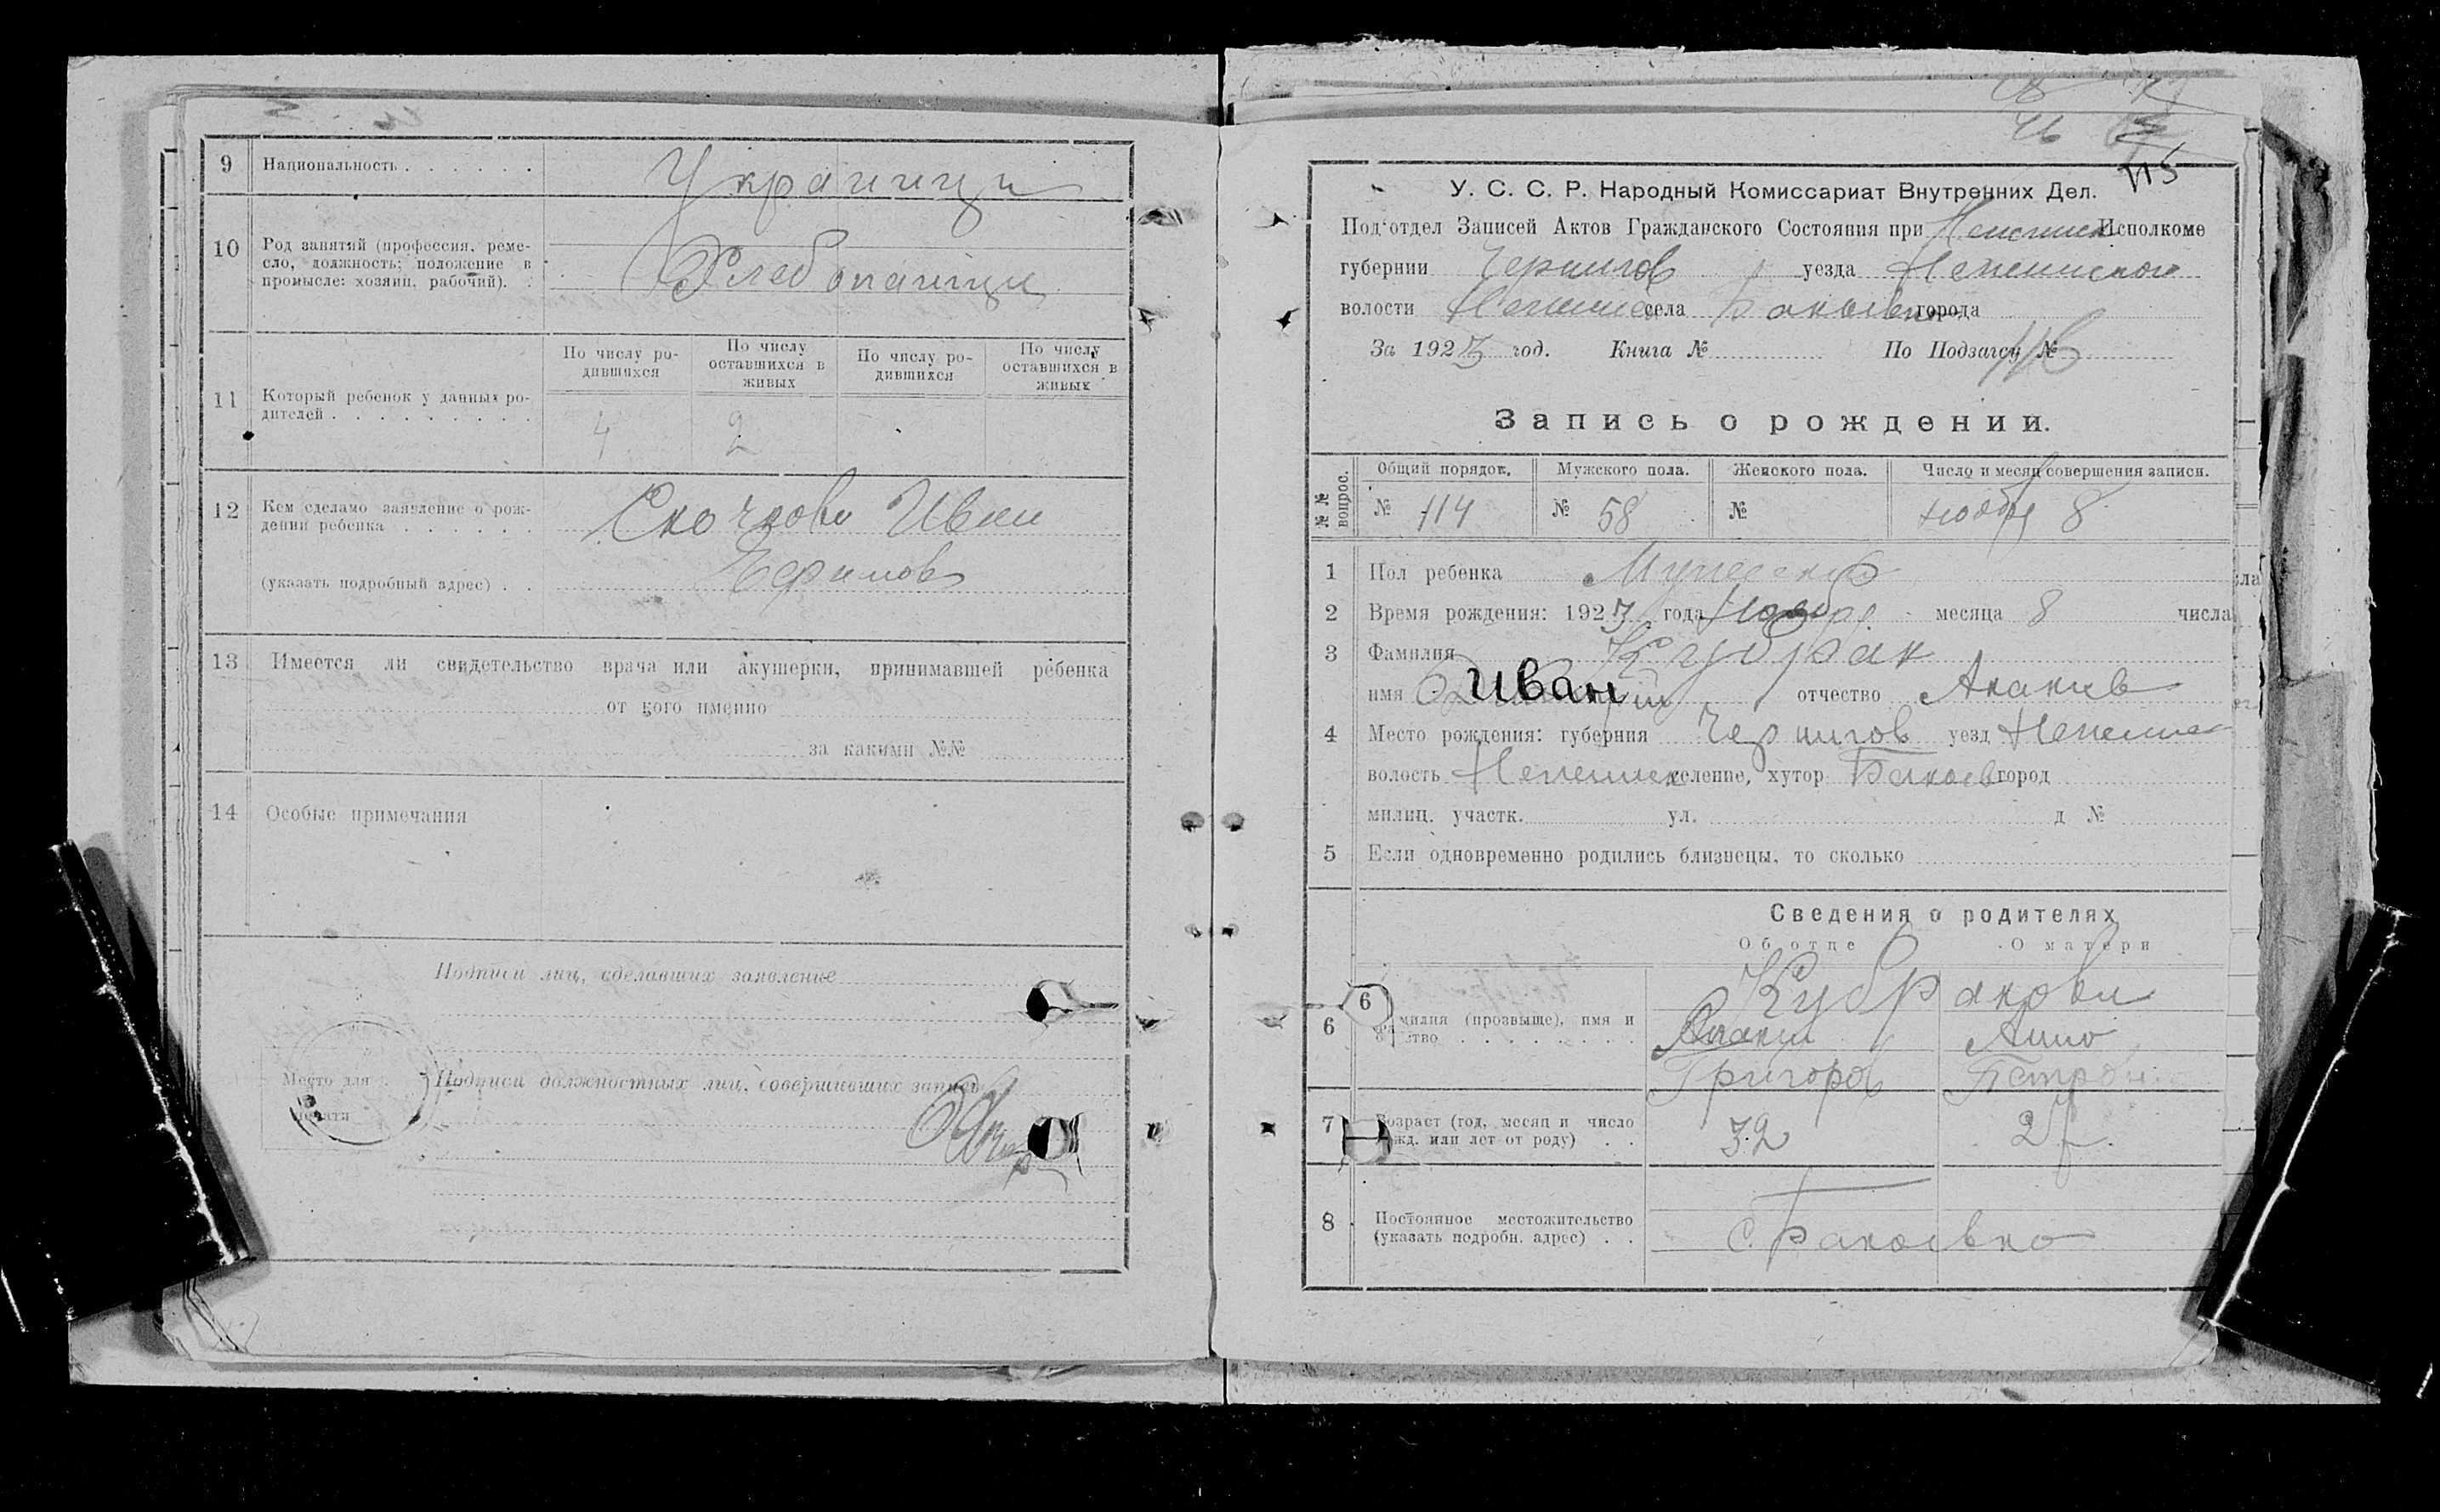 9 Национальность . . . . . . Украинци
10 Род занятий (профессия, реме-
сло, должность; положение в
промысле: хозяин, рабочий). . Хлебопашци
По числу ро-
дившихся
По числу
оставшихся в
живых
По числу ро-
дившихся
По числу
оставшихся в
живых
11 Который ребенок у данных ро-
дителей . . . . . . . . . 4 2
12 Кем сделамо заявление о рож-
дении ребенка . . . . . . Иван
(указать подробный адрес) . . Ефимов
13 Имеется ли свидетельство врача или акушерки, принимавшей ребенка
от кого именно
за какими №№
14 Особые примечания
Подписи лиц, сделавших заявление
Место для
печати
Подписи должностных лиц, совершивших запись
115
У. С. С. Р. Народный Комиссариат Внутренних Дел.
Под'отдел Записей Актов Гражданского Состояния при Исполкоме
губернии Чернигов уезда
волости села города
За 1923 год. Книга № По Подзагсу №
Запись о рождении.
№ № вопрос.
Общий порядок. Мужского пола. Женского пола. Число и месяц совершения записи.
№ 114 № 58 № ноябр 8
1 Пол ребенка Мужеский
2 Время рождения: 1923 года Ноябр месяца 8 числа
3 Фамилия Кубрак
имя Иван отчество Акакив
4 Место рождения: губерния Чернигов уезд
волость селение, хутор город
милиц. участк. ул. д №
5 Если одновременно родились близнецы, то сколько
Сведения о родителях
Об отце О матери
6
6 Фамилия (прозвыще), имя и
Кубракови
Акакий Анно
Григоров Петров
7 Возраст (год, месяц и число
рожд. или лет от роду) . . 32
8 Постоянное местожительство
(указать подробн. адрес) . .